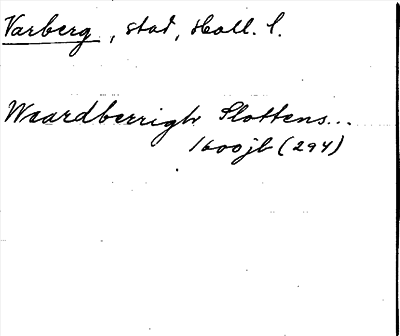 Varberg, stad, Hall. l.
Waardberrigh Slottens...
1600jb (294)